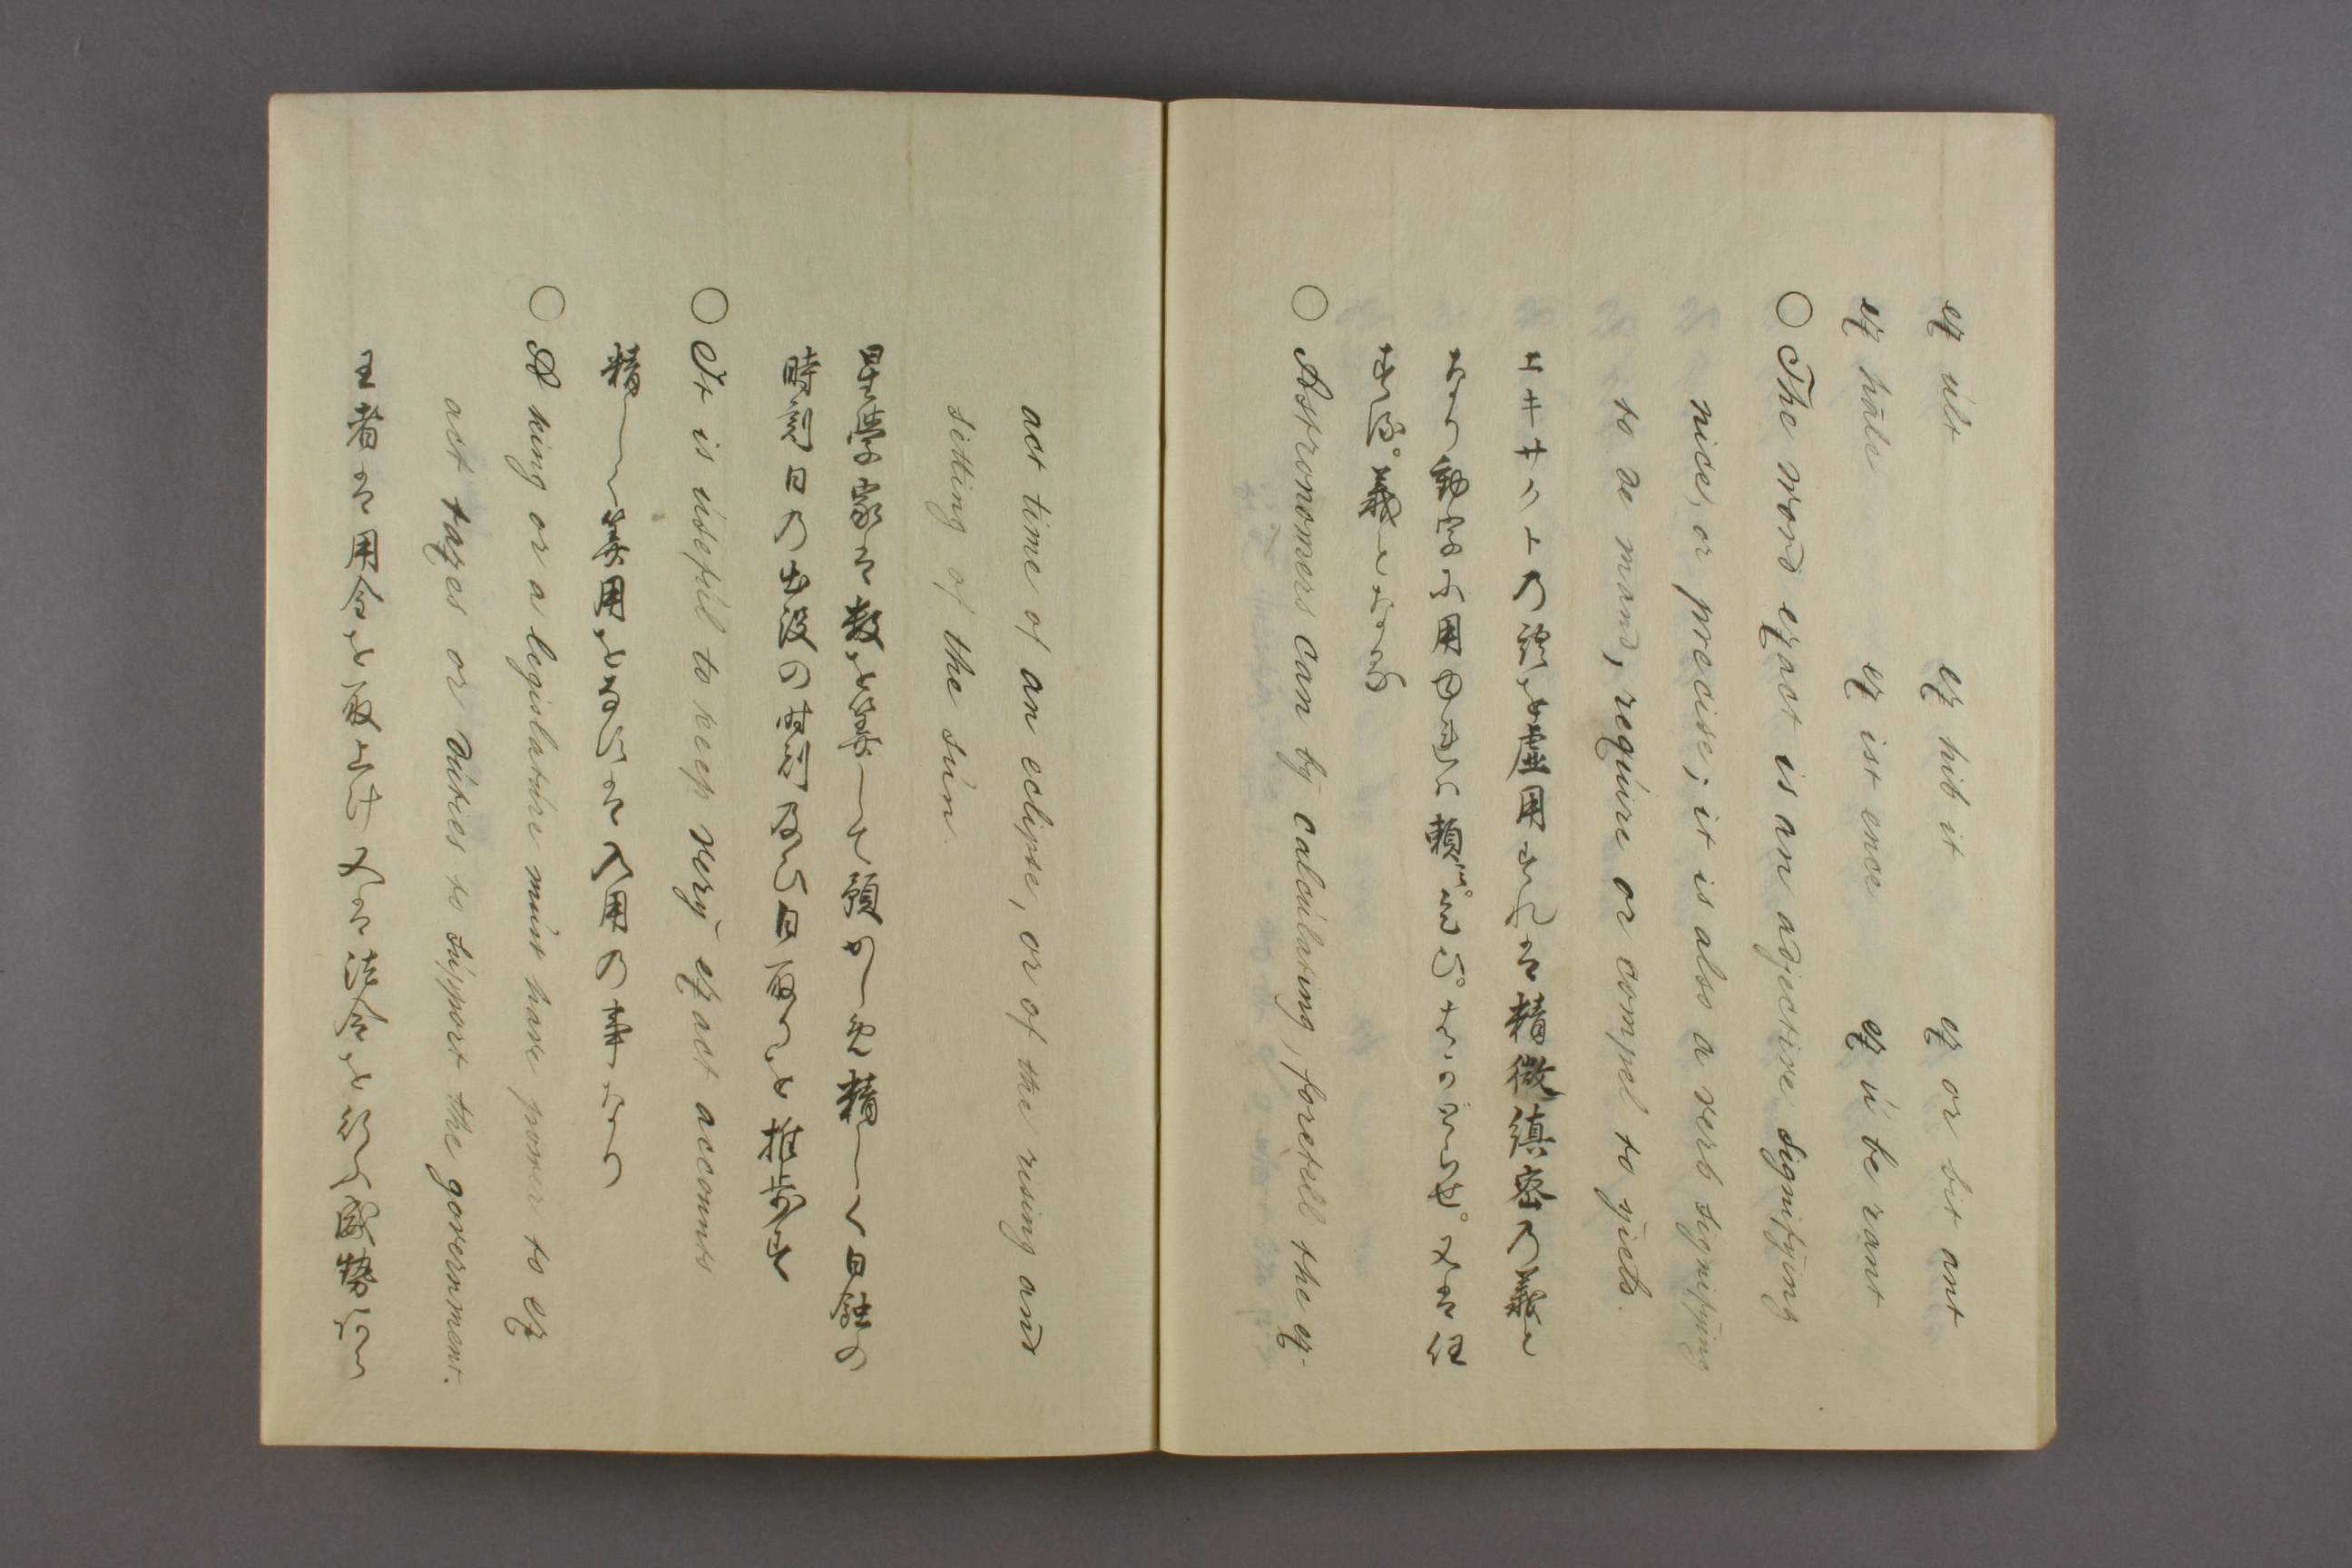 ex ult ex hib it ex or bit ant
ex hale ex ist ence ex u be rant
○ The word exact is an adjective signifying
nice, or precise; it is also a verb signifying
to de mand, require or compel to yield.
エキサクトの語を虚用すれは精微縝密の義と
なり動字に用ゆる
する義となる
○ Astronomers can by calculating, foretell the ex-
act time of an eclipse, or of the rising and
setting of the sun.
星学家は数を算して預かしめ精しく日蝕の
時刻日の出没の時刻及ひ日取りを推歩す
○ It is useful to keep very exact accounts
精しく算用をなすは入用の事なり
○ A king or a legislature must have power to ex
act taxes or duties to support the government.
王者は用金を取上け又は法令を行ふ威勢